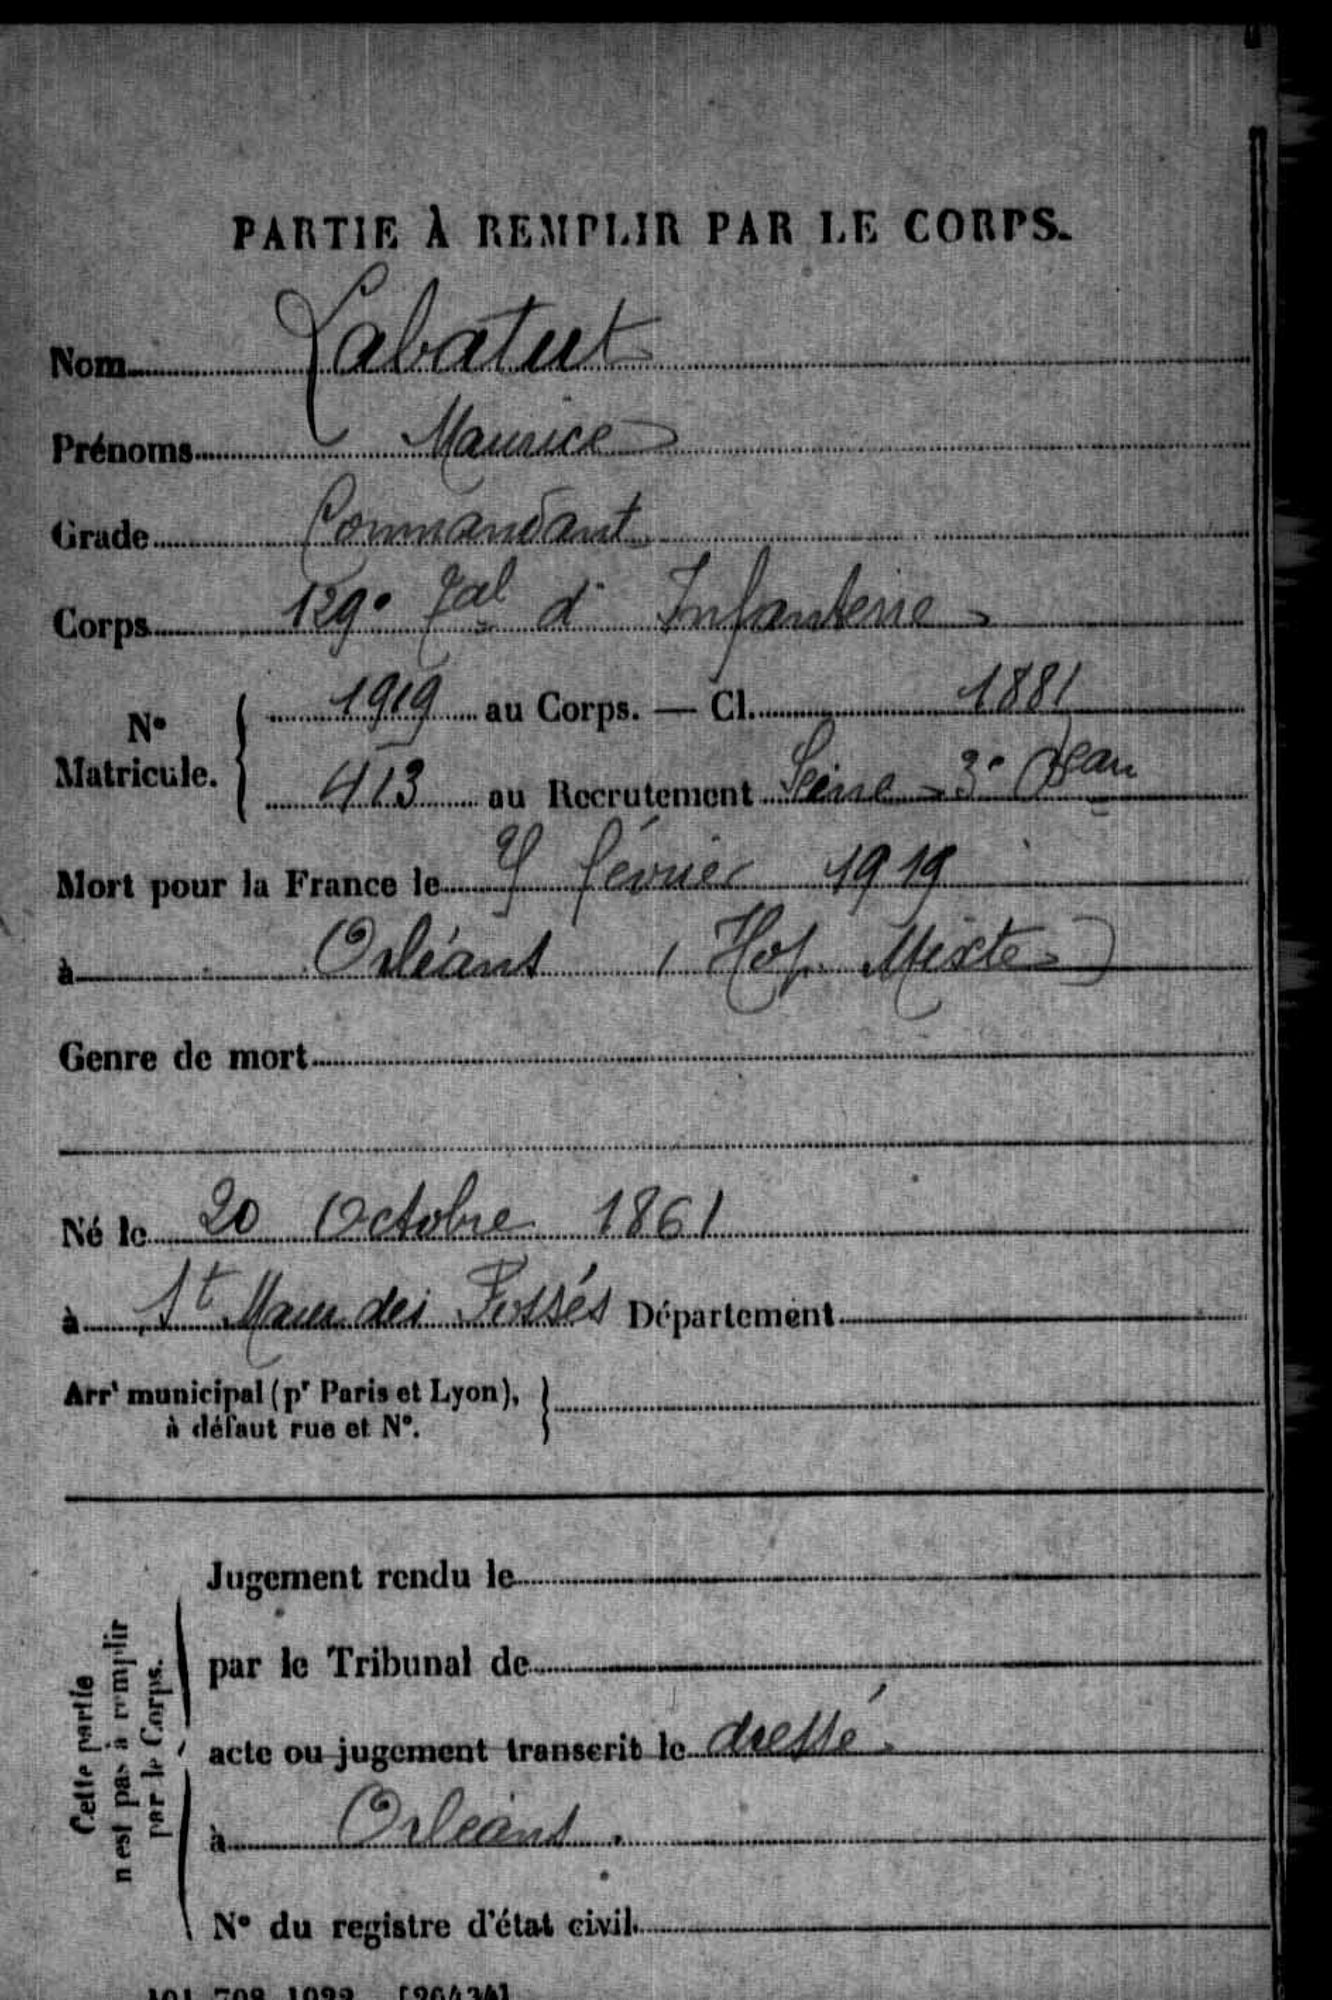 PARTIE À REMPLIR PAR LE CORPS.
Nom Labatut
Prénoms Maurice
Grade Commandant
Corps 129e Tal d' Infanterie
N° Matricule. { 1919 au Corps. — Cl. 1881
413 au Recrutement Seine - 3e Bau
Mort pour la France le février 1919
à Orléans (Hop. Mixte)
Genre de mort
Né le 20 Octobre 1861
à St Maur des Fossés Département
Arrt municipal (pr Paris et Lyon), }
à défaut rue et N°.
Cette partie
n'est pas à remplir
par le Corps.
Jugement rendu le
par le Tribunal de
acte ou jugement transcrit le dressé.
à Orléans.
N° du registre d'état civil
101.708.1922. [26434]